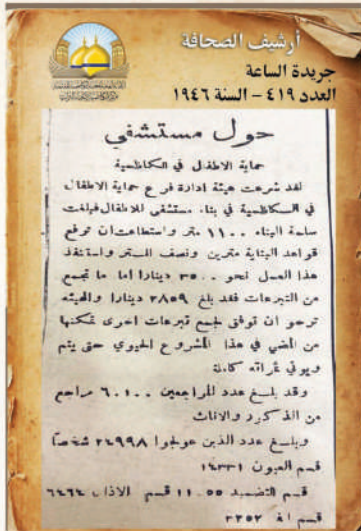 أرشيف الصحافة
جريدة الساعة
العدد ٤١٩ - السنة ١٩٤٦
حول مستشفي
حماية الاطفال في الكاظمية
لقد شرعت هيئة ادارة فرع حماية الاطفال
في الكاظمية في بناء مستشفى للاطفال فبلغت
ساحة البناء ١١٠٠ متر واستطاعت ان ترفع
قواعد البناية مترين ونصف المتر واستنفذ
هذا العمل نحو ٣٥٠٠ دينارا اما ما تجمع
من التبرعات فقد بلغ ٢٨٥٩ دينارا والهيئة
ترجو ان توفق لجمع تبرعات اخرى تمكنها
من المضي في هذا المشروع الحيوي حتى يتم
ويوتي ثمراته كاملة
وقد بلغ عدد المراجعين ٦٠١٠٠ مراجع
من الذكور والاناث
وبلغ عدد الذين عولجوا ٢٤٩٩٨ شخصا
قسم العيون ١٤٣٣١
قسم التضميد ١١٠٥٥ قسم الاذان ٦٤٦٤
قسم ٣٢٥٢